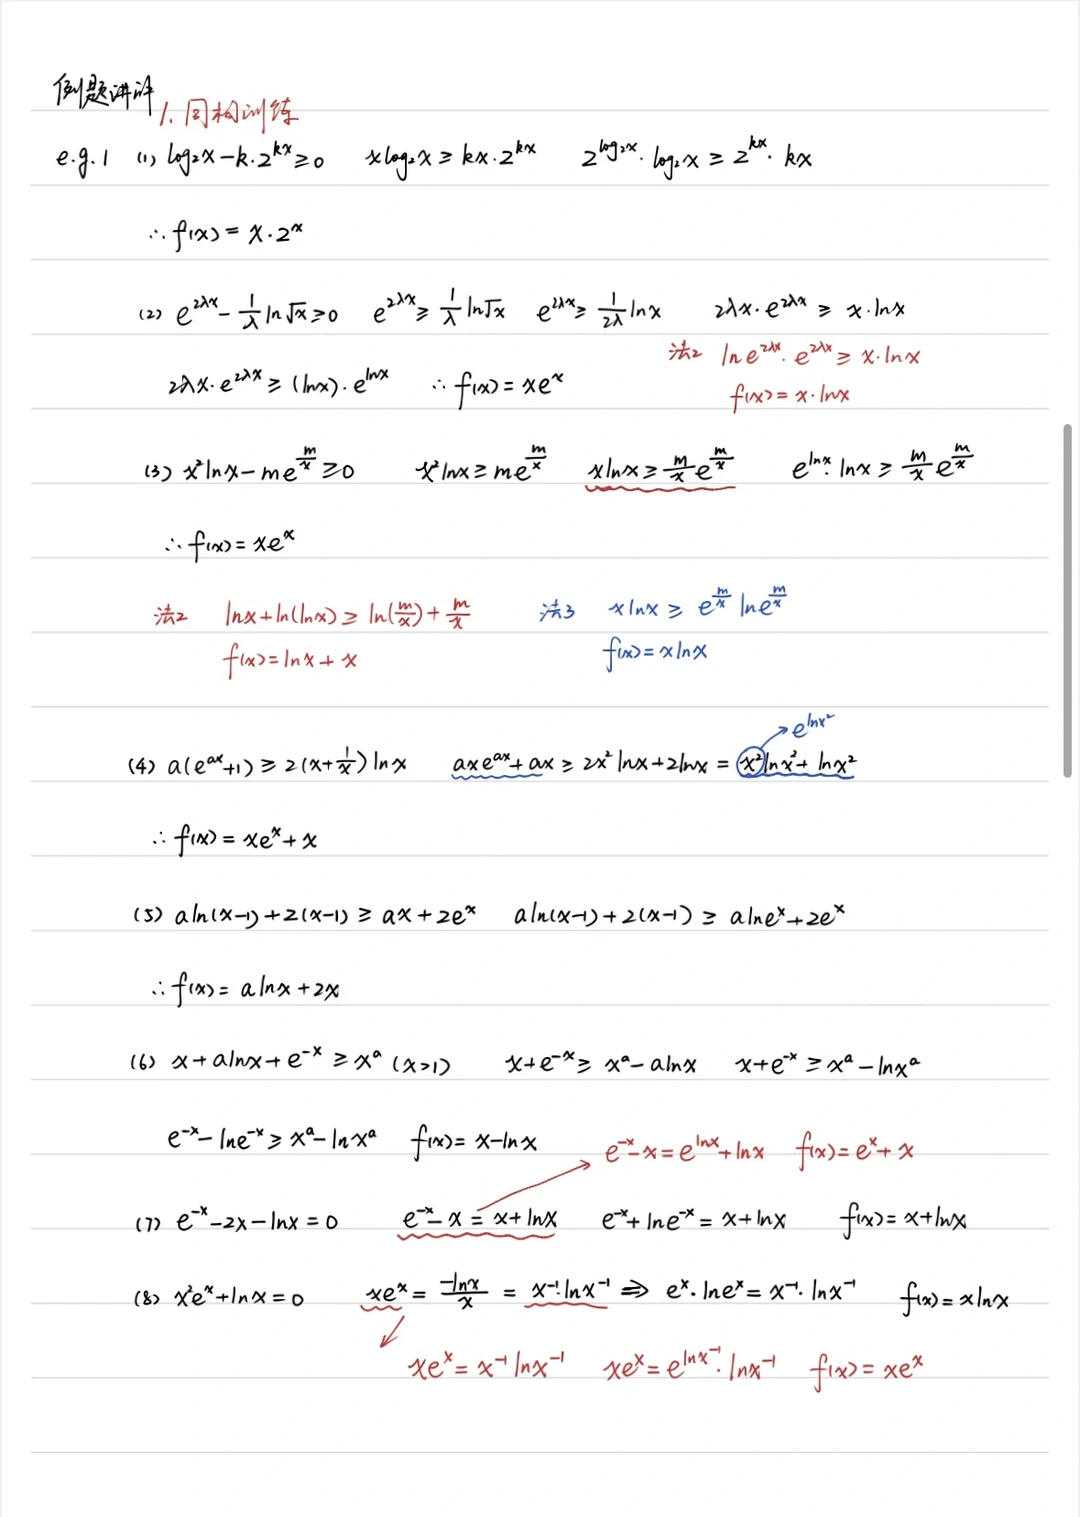 例题讲评
1. 同构训练
e.g.1 (1) log₂x-k·2^{kx}≥0 xlog₂x≥kx·2^{kx} 2^{log₂x}·log₂x≥2^{kx}·kx
∴f(x)=x·2^x
(2) e^{2λx}-\frac{1}{λ}ln√x≥0 e^{2λx}≥\frac{1}{λ}ln√x e^{2λx}≥\frac{1}{2λ}lnx 2λx·e^{2λx}≥x·lnx
法2 lne^{2λx}·e^{2λx}≥x·lnx
2λx·e^{2λx}≥(lnx)·e^{lnx} ∴f(x)=xe^x
f(x)=x·lnx
(3) x²lnx-me^{\frac{m}{x}}≥0 x²lnx≥me^{\frac{m}{x}} xlnx≥\frac{m}{x}e^{\frac{m}{x}} e^{lnx}·lnx≥\frac{m}{x}e^{\frac{m}{x}}
∴f(x)=xe^x
法2 lnx+ln(lnx)≥ln(\frac{m}{x})+\frac{m}{x} 法3 xlnx≥e^{\frac{m}{x}}lne^{\frac{m}{x}}
f(x)=lnx+x f(x)=xlnx
e^{lnx²}
(4) a(e^{ax}+1)≥2(x+\frac{1}{x})lnx axe^{ax}+ax≥2x²lnx+2lnx=x²lnx²+lnx²
∴f(x)=xe^x+x
(5) aln(x-1)+2(x-1)≥ax+2e^x aln(x-1)+2(x-1)≥alne^x+2e^x
∴f(x)=alnx+2x
(6) x+alnx+e^{-x}≥x^a (x>1) x+e^{-x}≥x^a-alnx x+e^{-x}≥x^a-lnx^a
e^{-x}-lne^{-x}≥x^a-lnx^a f(x)=x-lnx
e^{-x}-x=e^{lnx}+lnx f(x)=e^x+x
(7) e^{-x}-2x-lnx=0 e^{-x}-x=x+lnx e^{-x}+lne^{-x}=x+lnx f(x)=x+lnx
(8) x²e^x+lnx=0 xe^x=\frac{-lnx}{x}=x^{-1}·lnx^{-1}⇒e^x·lne^x=x^{-1}·lnx^{-1} f(x)=xlnx
xe^x=x^{-1}lnx^{-1} xe^x=e^{lnx^{-1}}·lnx^{-1} f(x)=xe^x